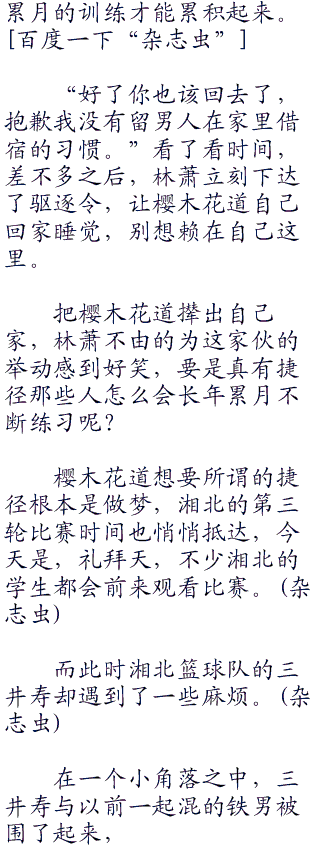 累月的训练才能累积起来。
[百度一下“杂志虫”]
“好了你也该回去了，
抱歉我没有留男人在家里借
宿的习惯。”看了看时间，
差不多之后，林萧立刻下达
了驱逐令，让樱木花道自己
回家睡觉，别想赖在自己这
里。
把樱木花道撵出自己
家，林萧不由的为这家伙的
举动感到好笑，要是真有捷
径那些人怎么会长年累月不
断练习呢？
樱木花道想要所谓的捷
径根本是做梦，湘北的第三
轮比赛时间也悄悄抵达，今
天是，礼拜天，不少湘北的
学生都会前来观看比赛。(杂
志虫)
而此时湘北篮球队的三
井寿却遇到了一些麻烦。(杂
志虫)
在一个小角落之中，三
井寿与以前一起混的铁男被
围了起来，